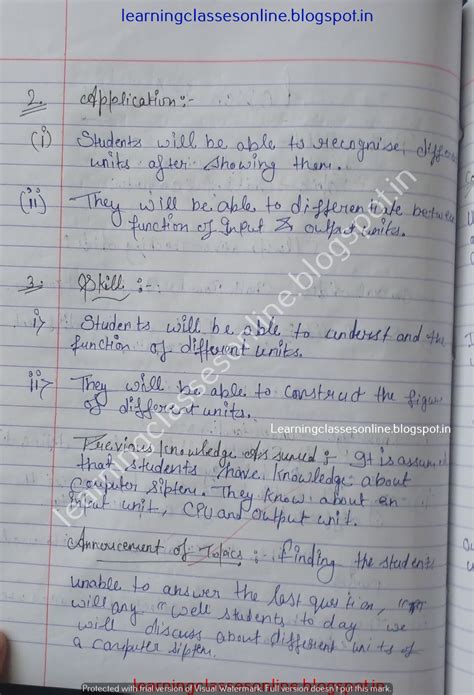 learningclassesonline.blogspot.in
2. Application:-
(i) Students will be able to recognise
units after showing them.
(ii) They will be able to differentiate between
function of Input & output units.
3. Skill:-
i) Students will be able to understand the
function of different units.
ii) They will be able to construct the figure
of different units.
Learningclassesonline.blogspot.in
Previous knowledge Assumed:- It is assumed
that students have knowledge about
Computer Siptem. They know about an
input unit, CPU and output unit.
Annoucement of Topics:- Finding the students
unable to answer the last question,
will any "well students to day we
will discuss about different units of
a computer siptem.
learningclassesonline.blogspot.in
Protected with trial version of Visual Watermark. Full version doesn't put this mark.
learningclassesonline.blogspot.in